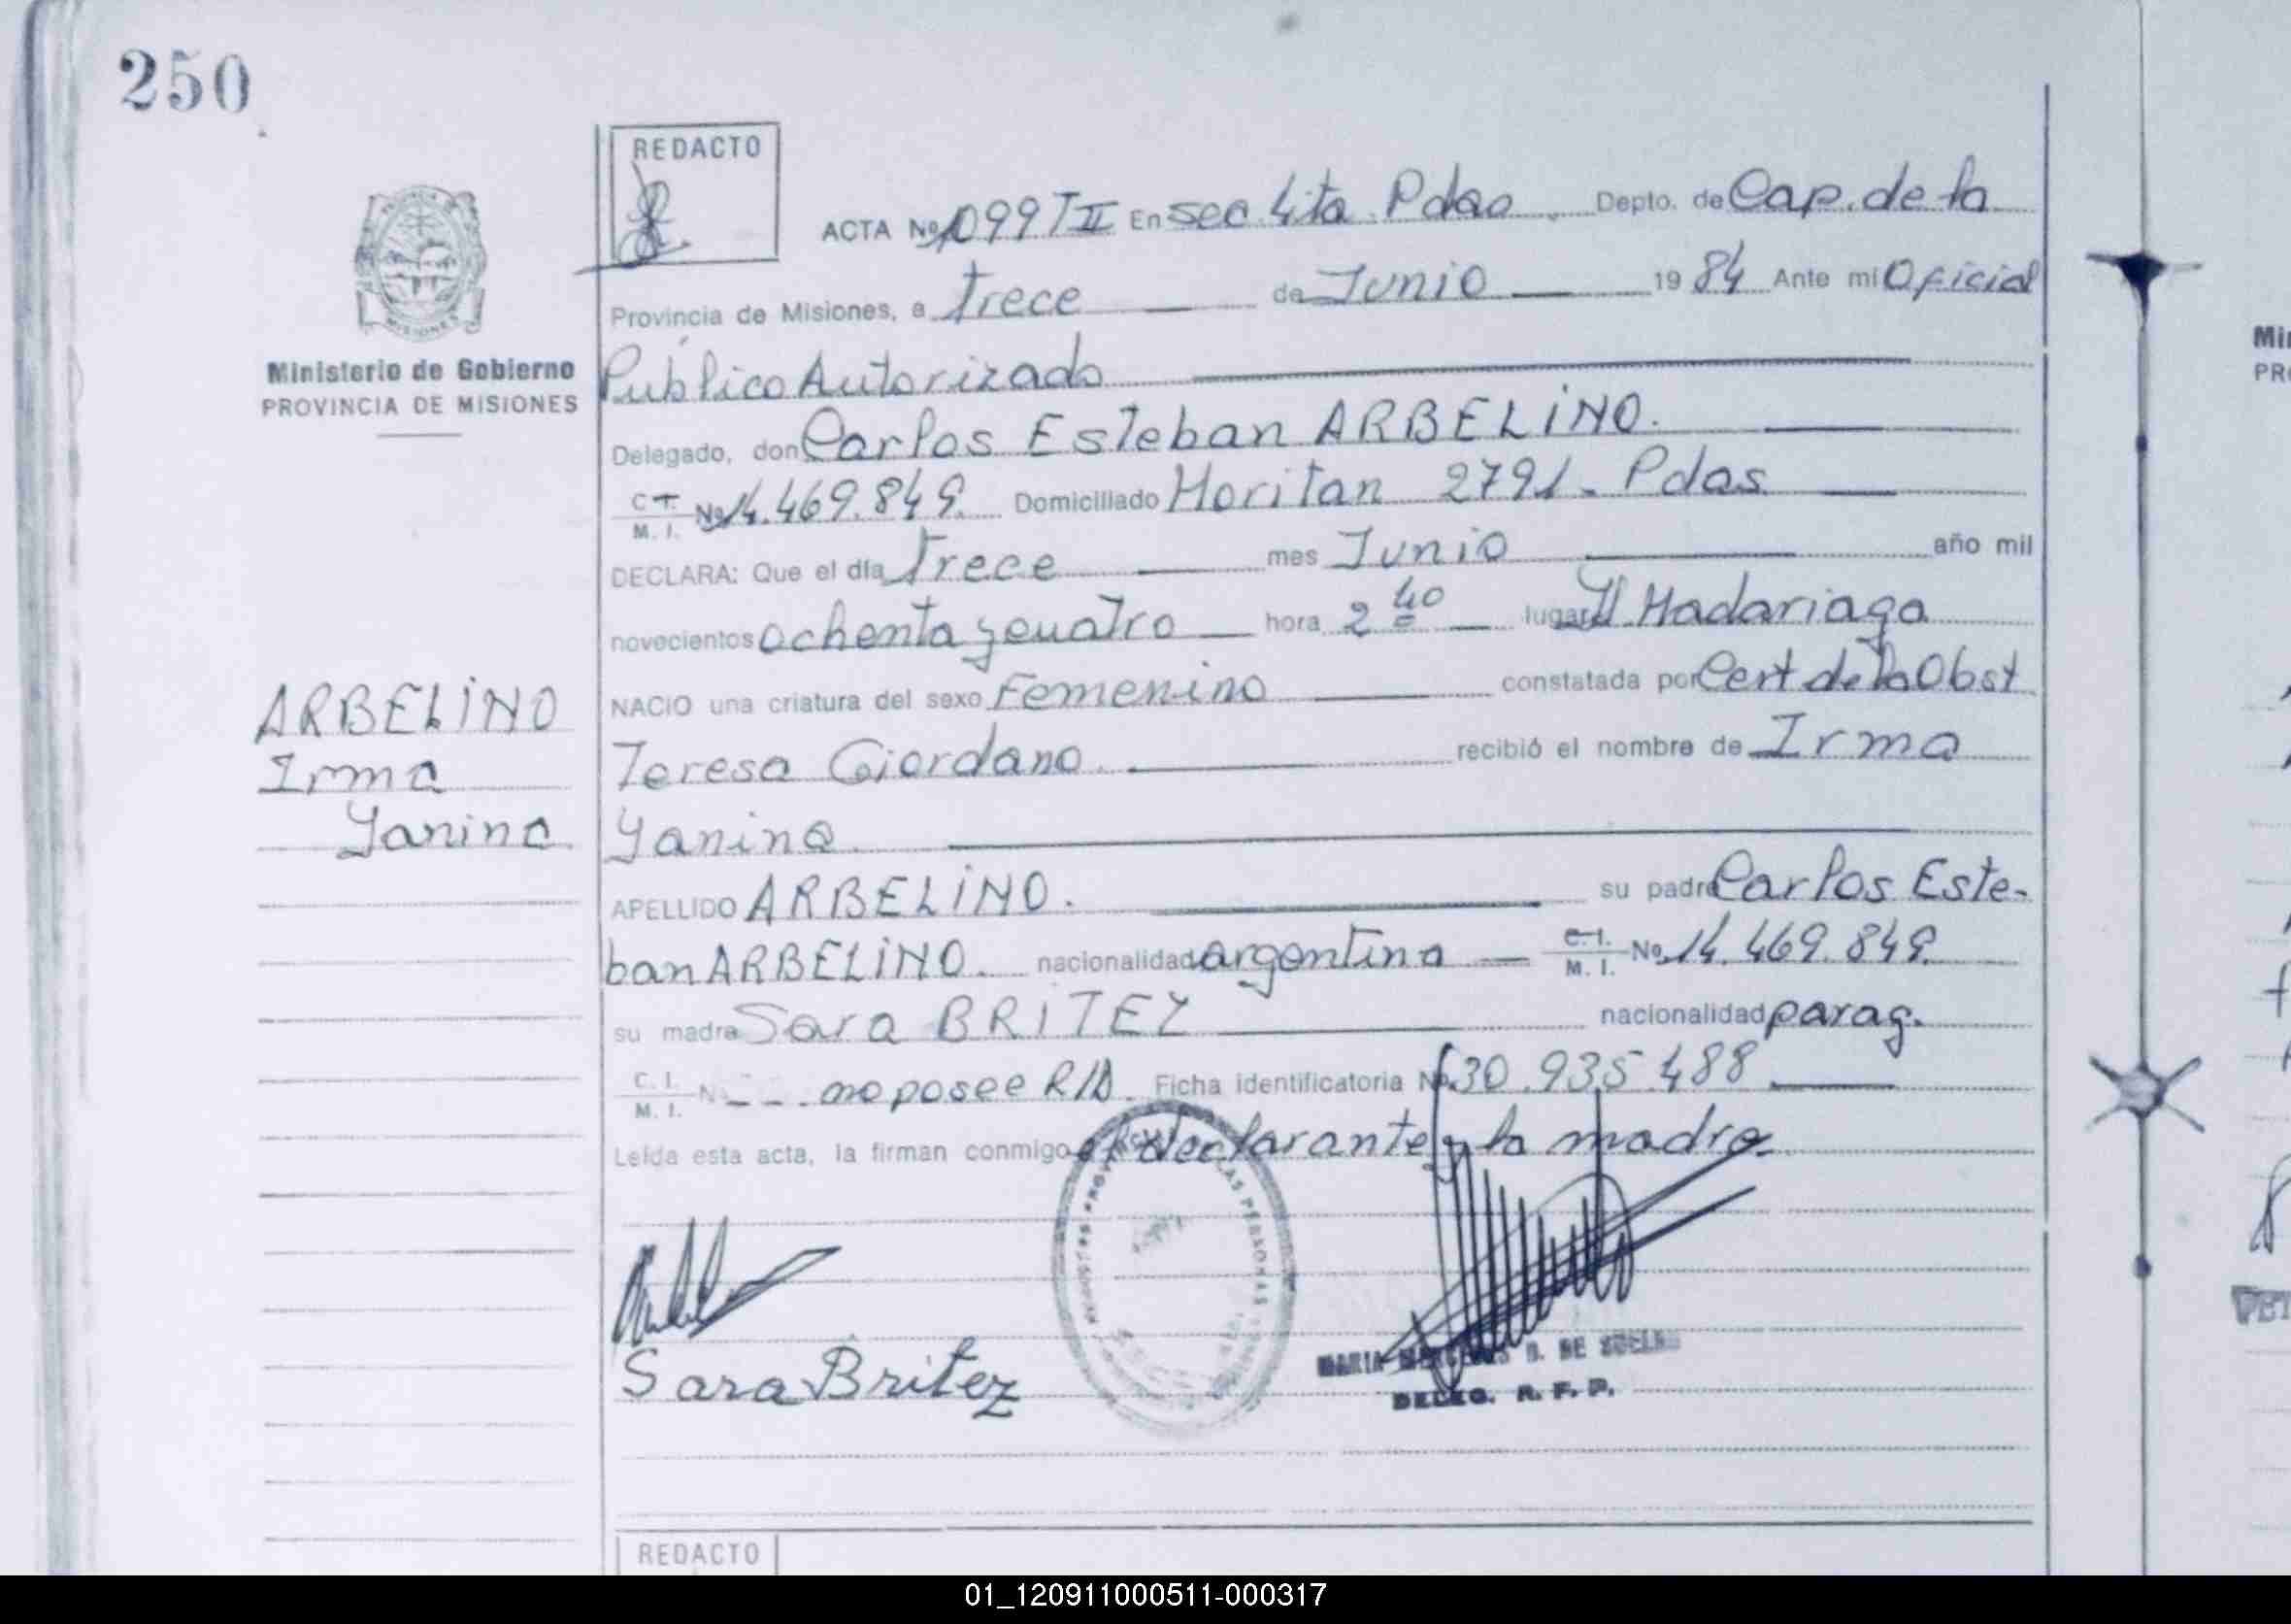 250
REDACTO
ACTA Nº 1099 T II En sec. 4ta. Pdas Depto. de Cap. de la
Provincia de Misiones, a trece de Junio 1984 Ante mi Oficial
Público Autorizado
Ministerio de Gobierno
PROVINCIA DE MISIONES
Delegado, don Carlos Esteban ARBELINO.
C.I. M. I. Nº 14.469.849. Domiciliado Moritan 2791 - Pdas
DECLARA: Que el día trece mes Junio año mil
novecientos ochenta y cuatro hora 2 40 lugar H. Madariaga
NACIO una criatura del sexo Femenino constatada por Cert de la Obst
Teresa Giordano. recibió el nombre de Irma
Yanina.
ARBELINO
Irma
Yanina.
APELLIDO ARBELINO. su padre Carlos Este-
ban ARBELINO. nacionalidad argentina C.I. M. I. Nº 14.469.849.
su madre Sara BRITEZ nacionalidad parag.
C. I. M. I. N - - . no posee R/D. Ficha identificatoria Nº 30.935.488
Leída esta acta, la firman conmigo el declarante y la madre.
Sara Britez
LAS PERSONAS
MARIA D. DE
DELEG. R. P. P.
REDACTO
01_120911000511-000317